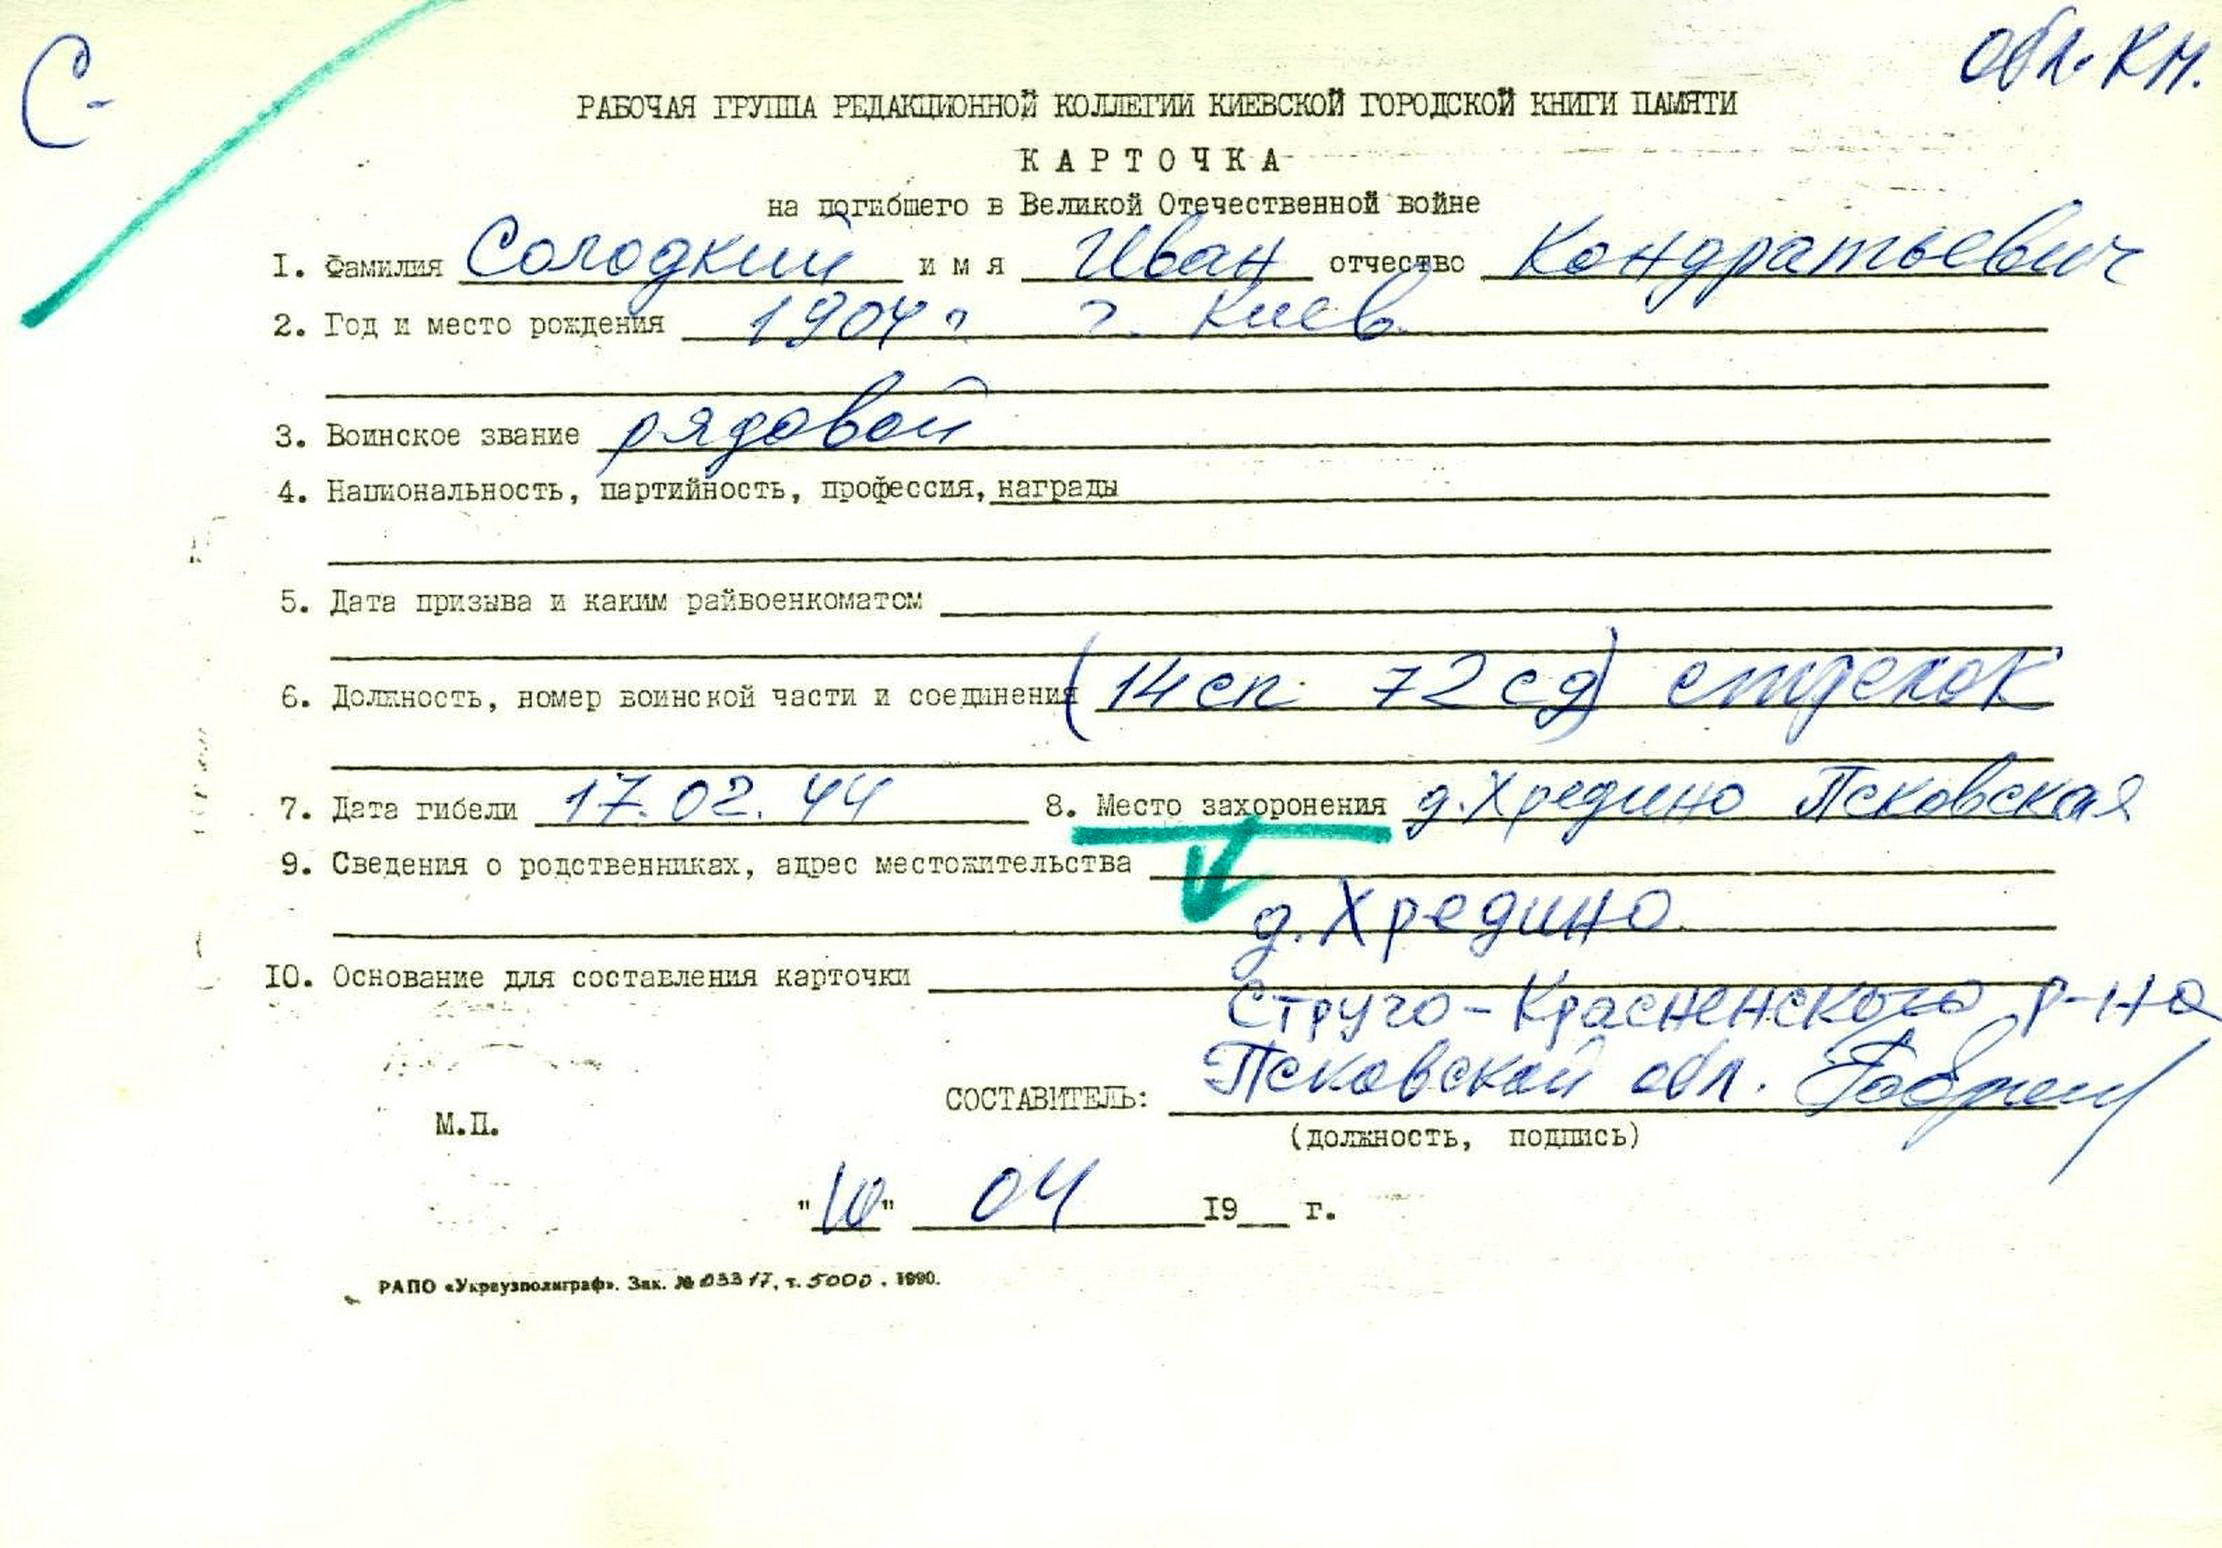 С-
обл. КП.
РАБОЧАЯ ГРУППА РЕДАКЦИОННОЙ КОЛЛЕГИИ КИЕВСКОЙ ГОРОДСКОЙ КНИГИ ПАМЯТИ
КАРТОЧКА
на погибшего в Великой Отечественной войне
I. Фамилия Солодкий имя Иван отчество Кондратьевич
2. Год и место рождения 1904 г г. Киев
3. Воинское звание рядовой
4. Национальность, партийность, профессия, награды
5. Дата призыва и каким райвоенкоматом
6. Должность, номер воинской части и соединения (14 сп 72 сд) стрелок
7. Дата гибели 17.02.44 8. Место захоронения д. Хредино Псковская
9. Сведения о родственниках, адрес местожительства
д. Хредино
10. Основание для составления карточки
Струго-Красненского р-на
Псковской обл.
СОСТАВИТЕЛЬ:
М.П.
(должность, подпись)
"10" 04 19 г.
РАПО «Укрвузполиграф». Зак. № 03317, т. 5000. 1990.